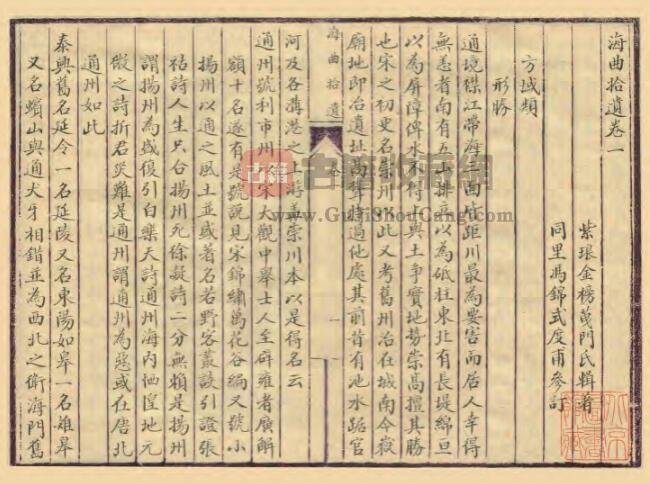 海曲拾遺卷一
紫琅金榜茂門氏輯著
同里馮錦式度甫參訂
方域類
形勝
通境襟江帶海三面皆距川最為要害而居人幸得
無恙者南有五山排立以為砥柱東北有長堤綿亘
以為屏障俾水不得與土爭實地勢崇高擅其勝
也宋之初吏名崇州以此又考舊州治在城南今嶽
廟地即冶遺址高聳特過他處其前昔有池水踞官
海曲拾遺
卷一
一
河及各溝港之上游蓋崇川本以是得名云
通州號利市州以宋大觀中舉士人至辟雍者廣解
額十名遂有是號說見宋錦繡萬花谷編又號小
揚州以通之風土並盛著名若野客叢談引證張
祜詩人生只合揚州死徐凝詩二分無賴是揚州
謂揚州為盛復引白樂天詩通州海內恓惶地元
微之詩折君災難是通州謂通州為惡或在唐北
通州如此
泰興舊名延令一名延陵又名東陽如皋一名雉皋
又名蠙山與通犬牙相錯並為西北之衛海門舊
古籍收藏網
www.GuJiShouCang.com